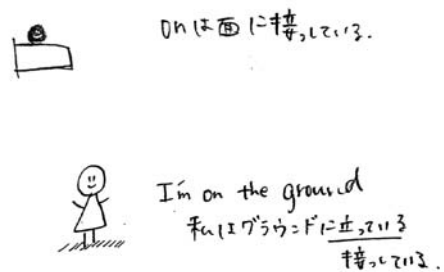 onは面に接っしている.
I'm on the ground
私はグラウンドに立っている
接っしている.